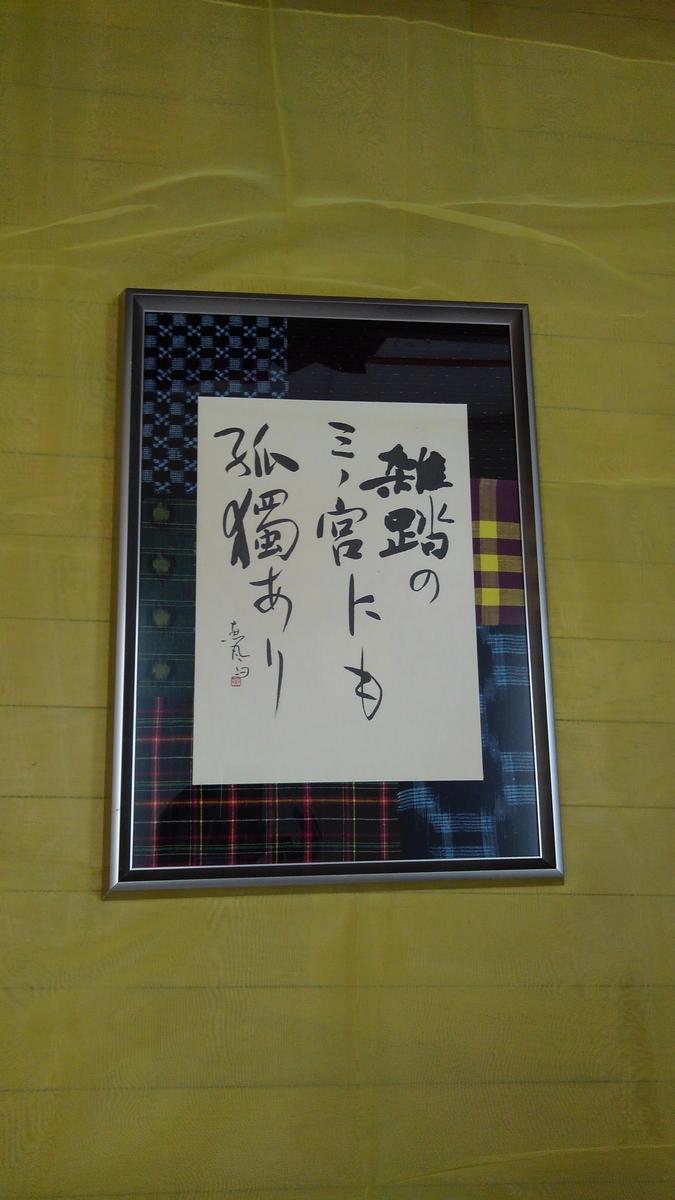 雑踏の
三ノ宮にも
孤獨あり